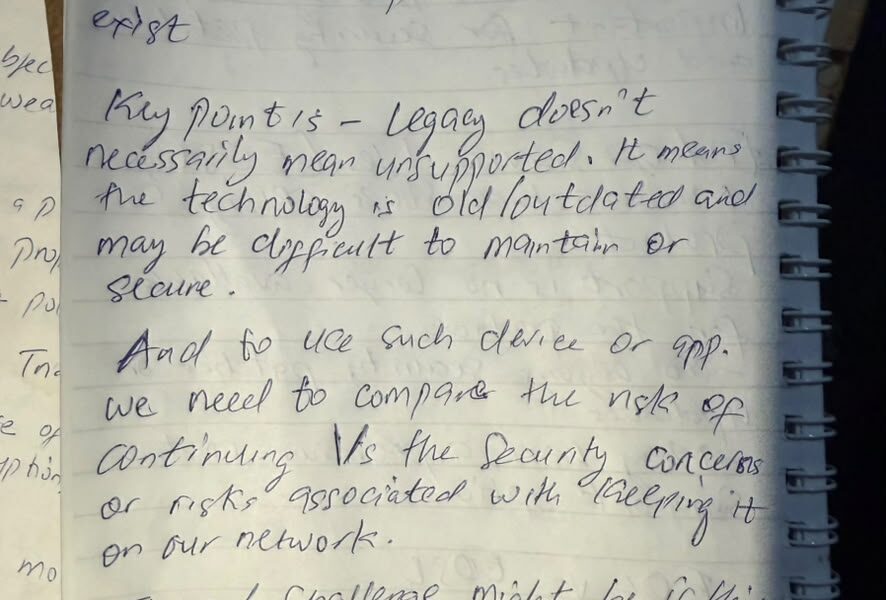 exist
Key point is - Legacy doesn't
necessarily mean unsupported. It means
the technology is old/outdated and
may be difficult to maintain or
secure.
And to use such device or app.
we need to compare the risk of
continuing V/s the security concerns
or risks associated with keeping it
on our network.
challenge might be
bjec
wea
a p
pro
po
The
e of
ption
mo